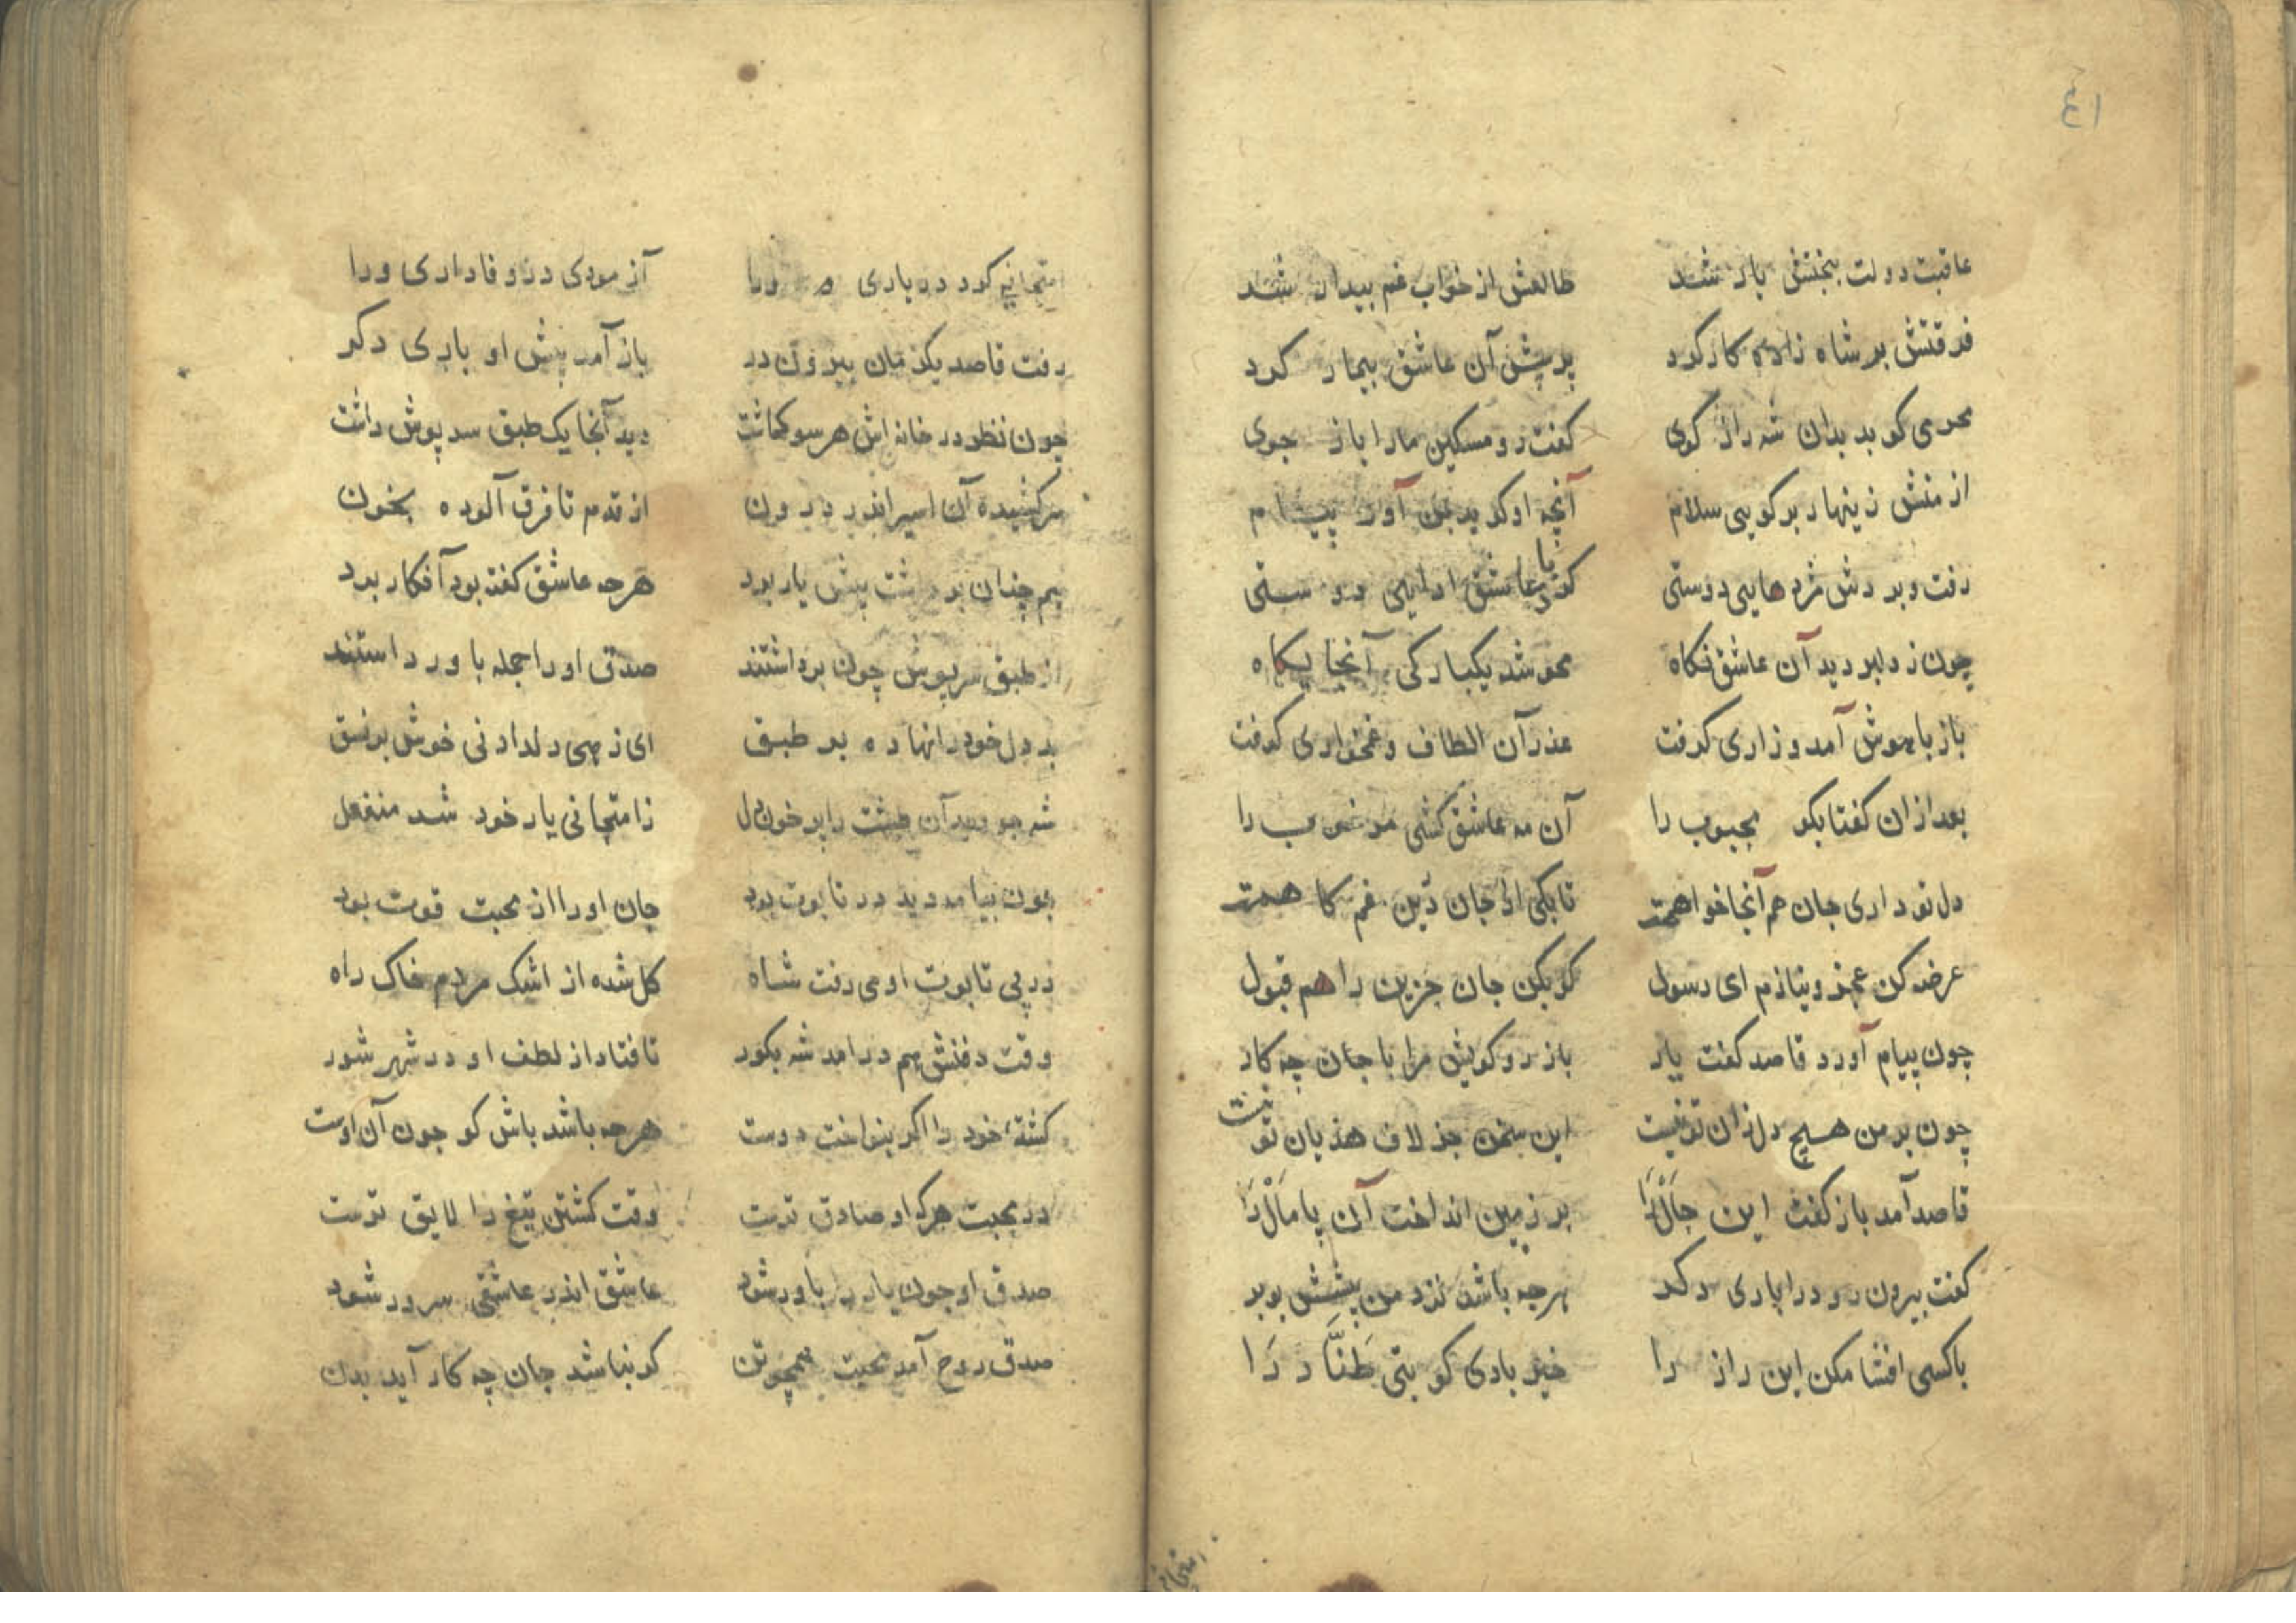 ٤١
عاقبت دولت ببختش یار شد طالعش از خواب غم بیدار شد
فرقتش بر شاه زاده کار کرد پرسش آن عاشق بیمار کرد
محرمی کو بد بدان شه راز کوی کفت رو مسکین مارا باز جوی
از منش زینهار بر کویی سلام آنچه او کوید بمن آور پیام
رفت و بردش مژدهایی دوستی کوی با عاشق ادایی دوستی
چون ز دلبر دید آن عاشق نکاه محو شد یکبارکی آنجا یکاه
باز باهوش آمد و زاری کرفت عذر آن الطاف و غمخواری کرفت
بعد ازان کفتا بکو محبوب را آن مه عاشق کشی مرغوب را
دل تو داری جان هم آنجا خواهمت تا یکی از جان دین غم کاهمت
عرضه کن عجز و نیازم ای رسول کو بکن جان حزین را هم قبول
چون پیام آورد قاصد کفت یار باز رو کویش مرا با جان چه کار
چون بر من هیچ دل زان تو نیست این سخن جز لاف هذیان تو نیست
قاصد آمد باز کفت این حال را بر زمین انداخت آن پامال را
کفت بیرون رو درا باری دکر هرچه باشد نزد من پیشش ببر
با کسی افشا مکن این راز را خیر بادی کو بتی طناز را
امتحانی کرد در یاری ورا آزمودی در وفاداری ورا
رفت قاصد یکزمان بیرون در باز آمد پیش او باری دکر
چون نظر در خانه اش هر سو کماشت دید آنجا یک طبق سرپوش داشت
سرکشیده آن اسیر اندر درون از قدم تا فرق آلوده بخون
هم چنان برداشت پیش یار برد هرچه عاشق کفته بود آفکار برد
از طبق سرپوش چون برداشتند صدق او را جمله باور داشتند
بد دل خود را نهاده بر طبق ای زهی دلدادنی خوش بر نسق
شه چو دید آن طشت را پر خون دل ز امتحانی یار خود شد منفعل
چون بیامد دید در تابوت بود جان او را از محبت قوت بود
در پی تابوت او می رفت شاه کل شده از اشک مردم خاک راه
وقت دفنش هم درامد شه بکور تا فتاد از لطف او در شهر شور
کشتهٔ خود را اکر بنواخت دوست هرچه باشد باش کو چون آن اوست
در محبت هرکه او صادق ترست وقت کشتن تیغ را لایق ترست
صدق او چون یار را باور شود عاشق اندر عاشقی سرور شود
صدق روح آمد محبت همچو تن کو نباشد جان چه کار آید بدن